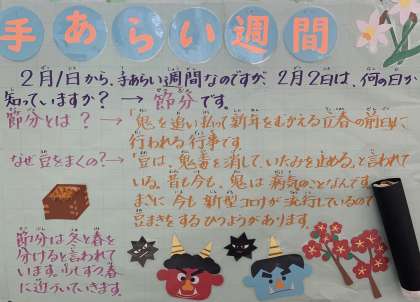 手あらい週間
2月1日から、手あらい週間なのですが、2月2日は、何の日か
知っていますか? → 節分です。
節分とは? → 「鬼を追い払って新年をむかえる立春の前日に、
行われる行事です。
なぜ豆をまくの?→ 「豆は、鬼毒を消して、いたみを止める。と言われて
いる。昔も今も、鬼は病気のことなんです。
まさに今も新型コロナが流行しているので
豆まきをするひつようがあります。
節分は冬と春を
分けると言われて
います。少しずつ春
に近づいていきます。